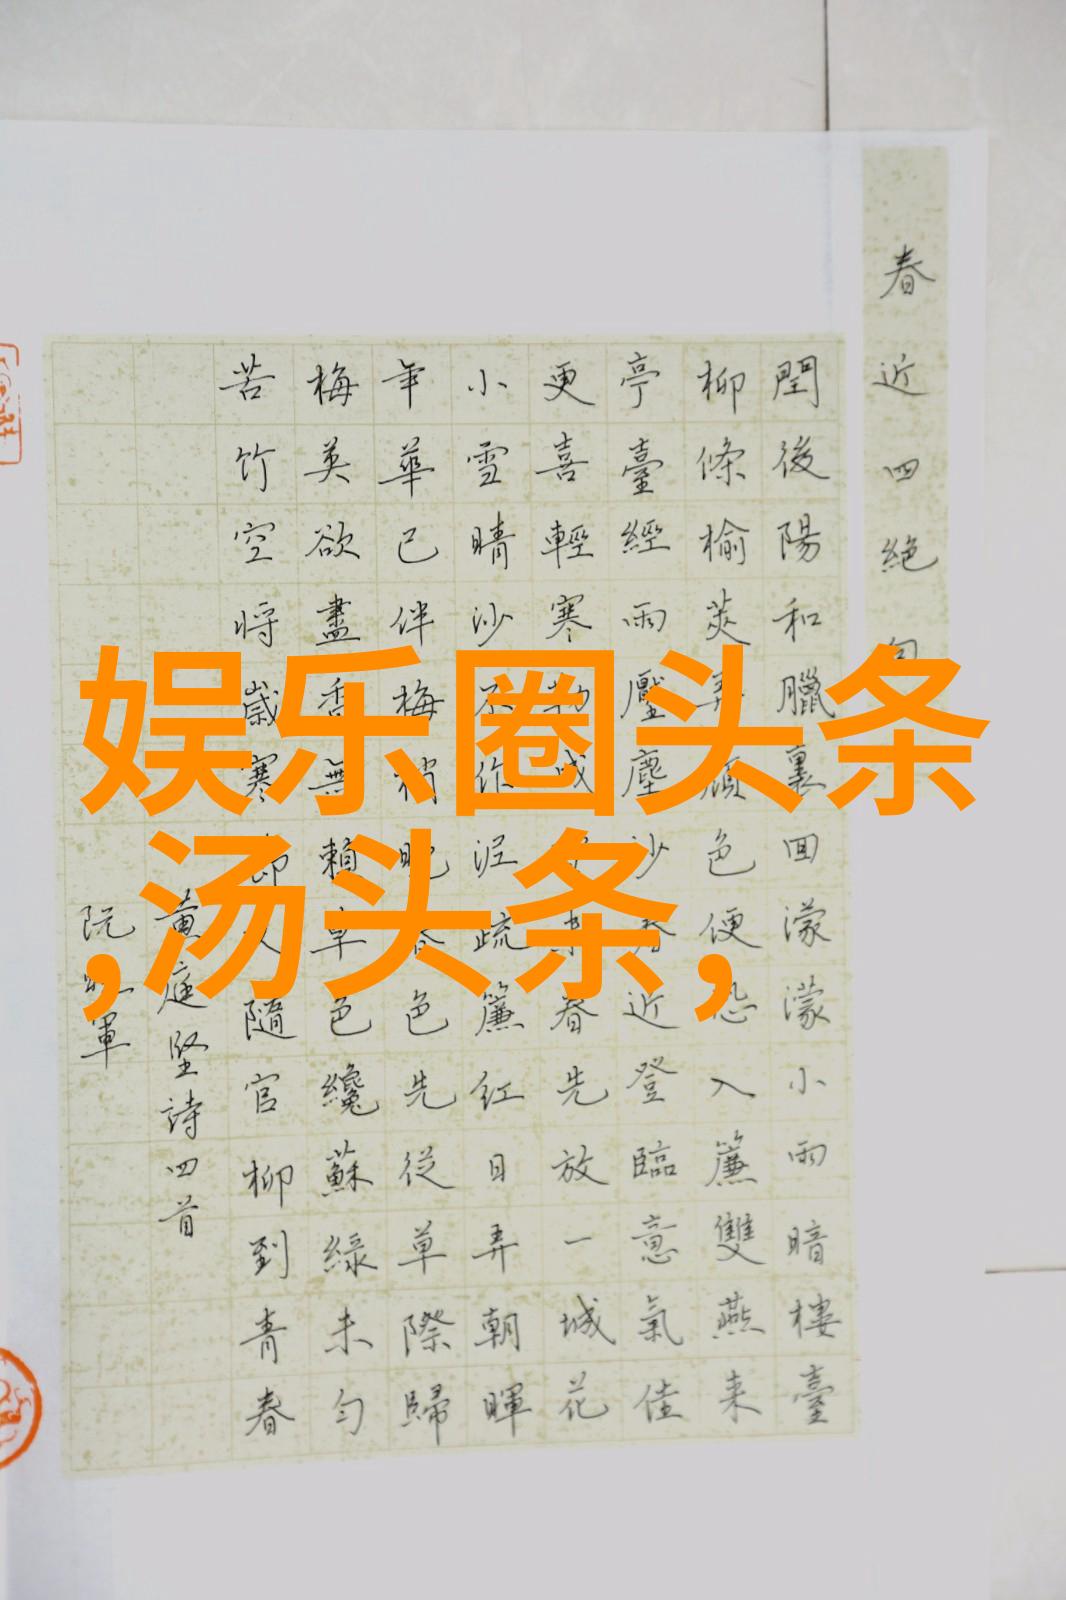 春近四絕句
閏後陽和臘裏回濛濛小雨暗樓臺
柳條榆莢弄顏色便恐入簾雙燕來
亭臺經雨壓塵沙春近登臨意氣佳
更喜輕寒勒成雪未春先放一城花
小雪晴沙不作泥疏簾紅日弄朝暉
年華已伴梅梢晚春色先從草際歸
梅英欲盡香無賴草色纔蘇綠未勻
苦竹空將歲寒節又隨官柳到青春
黃庭堅詩四首
阮軍
娱乐圈头条
,汤头条,